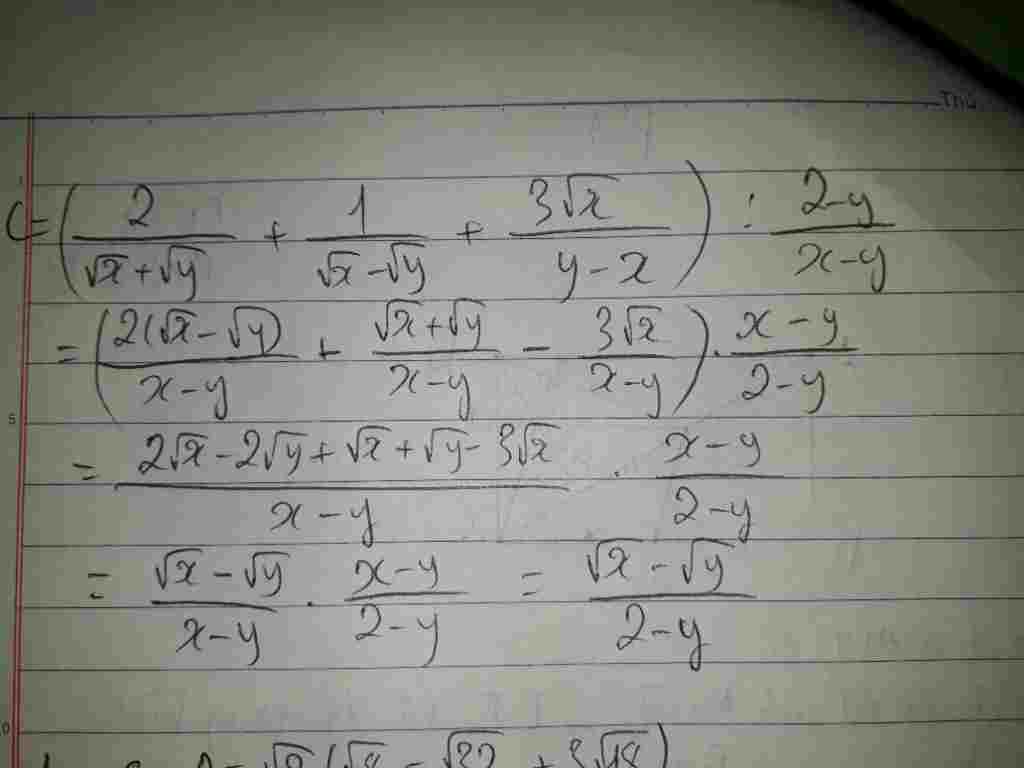 Thứ
C = (2/(√x + √y) + 1/(√x - √y) + 3√x/(y - x)) : (2 - y)/(x - y)
= (2(√x - √y)/(x - y) + (√x + √y)/(x - y) - 3√x/(x - y)) . (x - y)/(2 - y)
5
= (2√x - 2√y + √x + √y - 3√x)/(x - y) . (x - y)/(2 - y)
= (√x - √y)/(x - y) . (x - y)/(2 - y) = (√x - √y)/(2 - y)